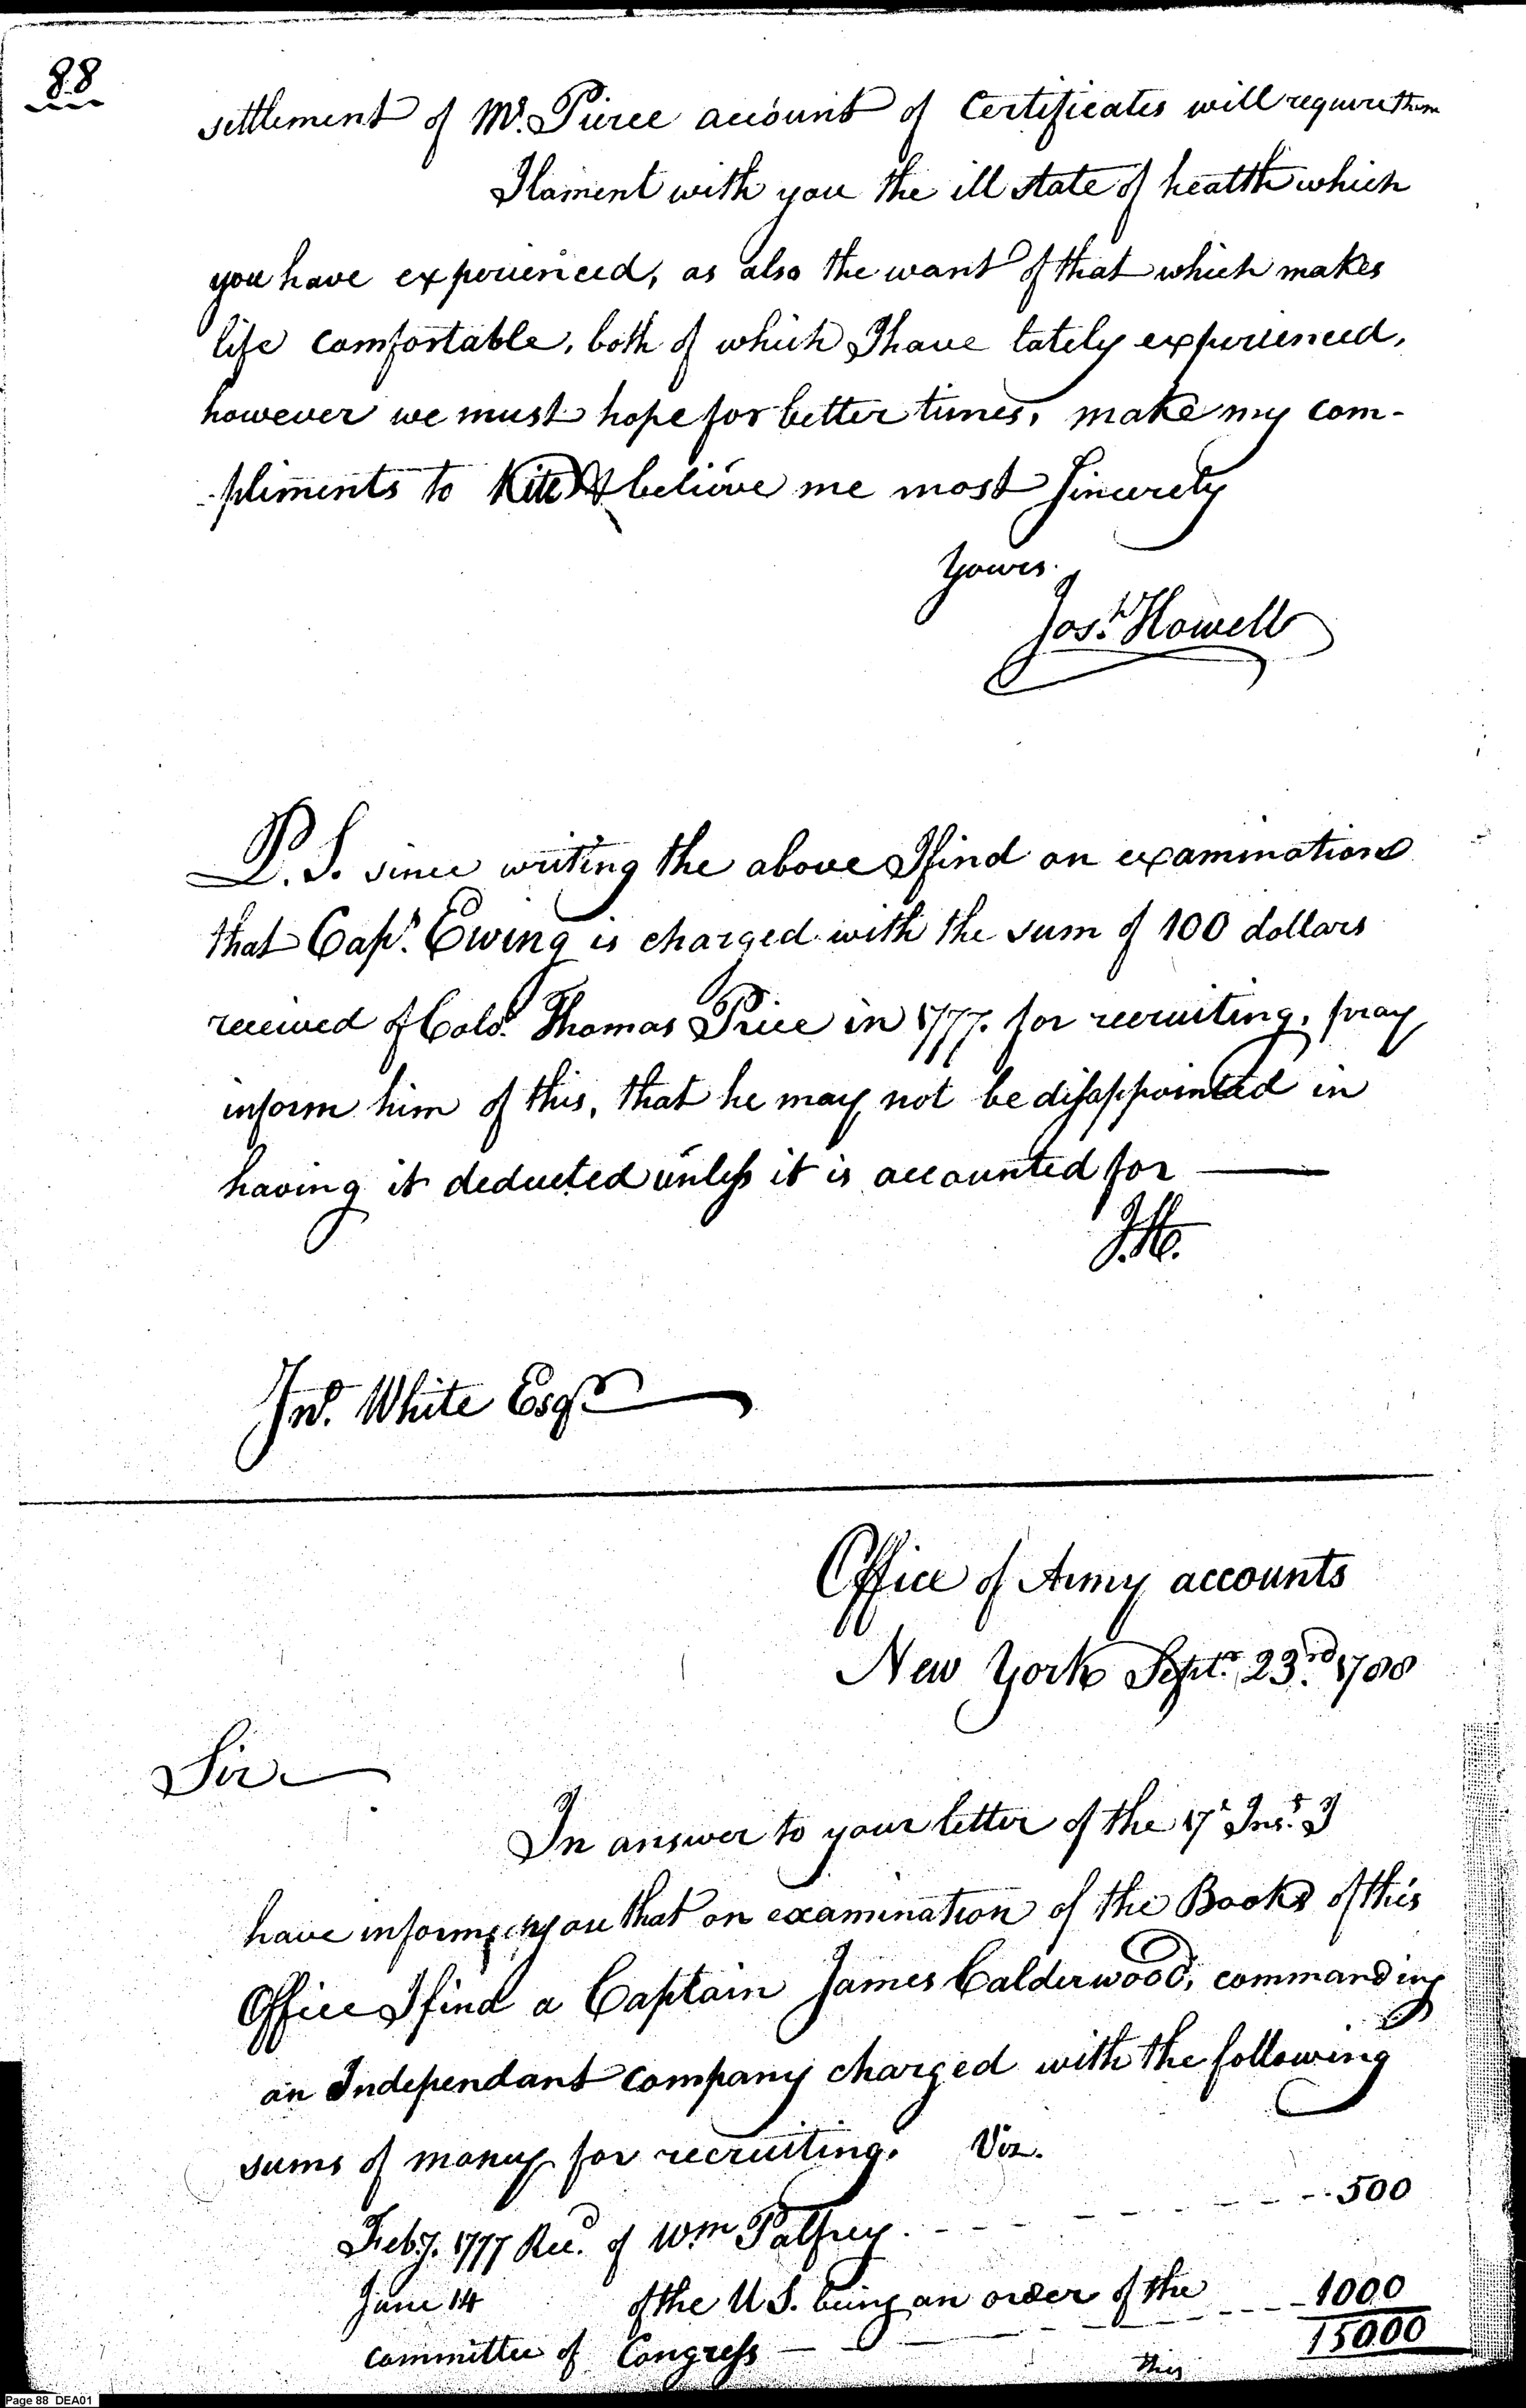 88
settlement of Mr. Pierce account of Certificates will require them
I lament with you the ill state of health which
you have experienced, as also the want of that which makes
life comfortable, both of which I have lately experienced,
however we must hope for better times, make my com-
-pliments to Kite & believe me most Sincerely
Yours
Josh. Howell
P.S. since writing the above I find on examination
that Capt. Ewing is charged with the sum of 100 dollars
received of Colo. Thomas Price in 1777. for recruiting, pray
inform him of this, that he may not be disappointed in
having it deducted unless it is accounted for
J.H.
Jno. White Esqr
Office of Army accounts
New York Septr. 23rd 1788
Sir
In answer to your letter of the 17t Inst. I
have informg you that on examination of the Books of this
Office I find a Captain James Calderwood, commanding
an Independant company charged with the following
sums of money for recruiting. Viz.
Feby. 1777 Recd. of Wm Palfrey. - - - - - - - - 500
June 14 of the U S. being an order of the
committee of Congress - - - - - - 1000
15000
this
Page 88 DEA01